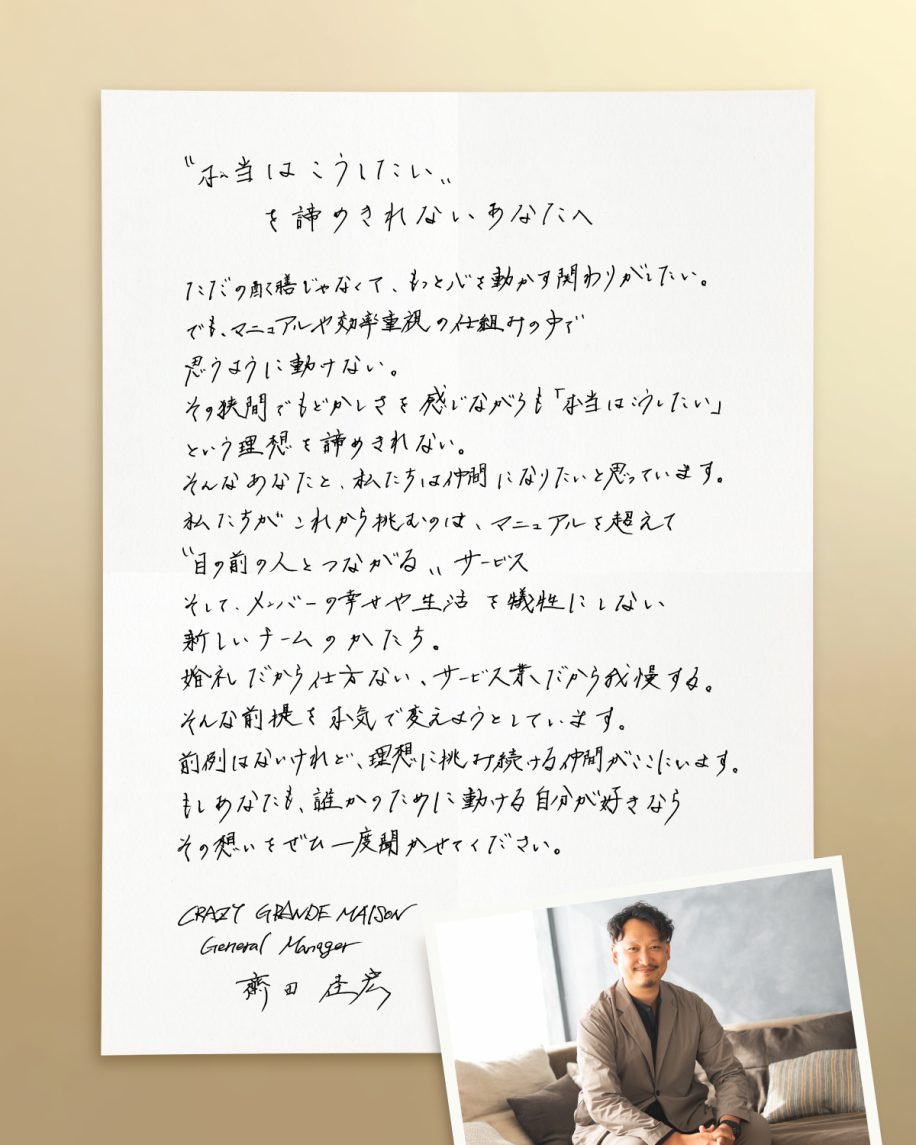 〝本当はこうしたい〟
を諦めきれないあなたへ
ただの配膳じゃなくて、もっと心を動かす関わりがしたい。
でも、マニュアルや効率重視の仕組みの中で
思うように動けない。
その狭間でもどかしさを感じながらも「本当はこうしたい」
という理想を諦めきれない。
そんなあなたと、私たちは仲間になりたいと思っています。
私たちがこれから挑むのは、マニュアルを超えて
〝目の前の人とつながる〟サービス
そして、メンバーの幸せや生活を犠牲にしない
新しいチームのかたち。
婚礼だから仕方ない、サービス業だから我慢する。
そんな前提を本気で変えようとしています。
前例はないけれど、理想に挑み続ける仲間がここにいます。
もしあなたも、誰かのために動ける自分が好きなら
その想いをぜひ一度聞かせてください。
CRAZY GRANDE MAISON
General Manager
齋田 圭宏